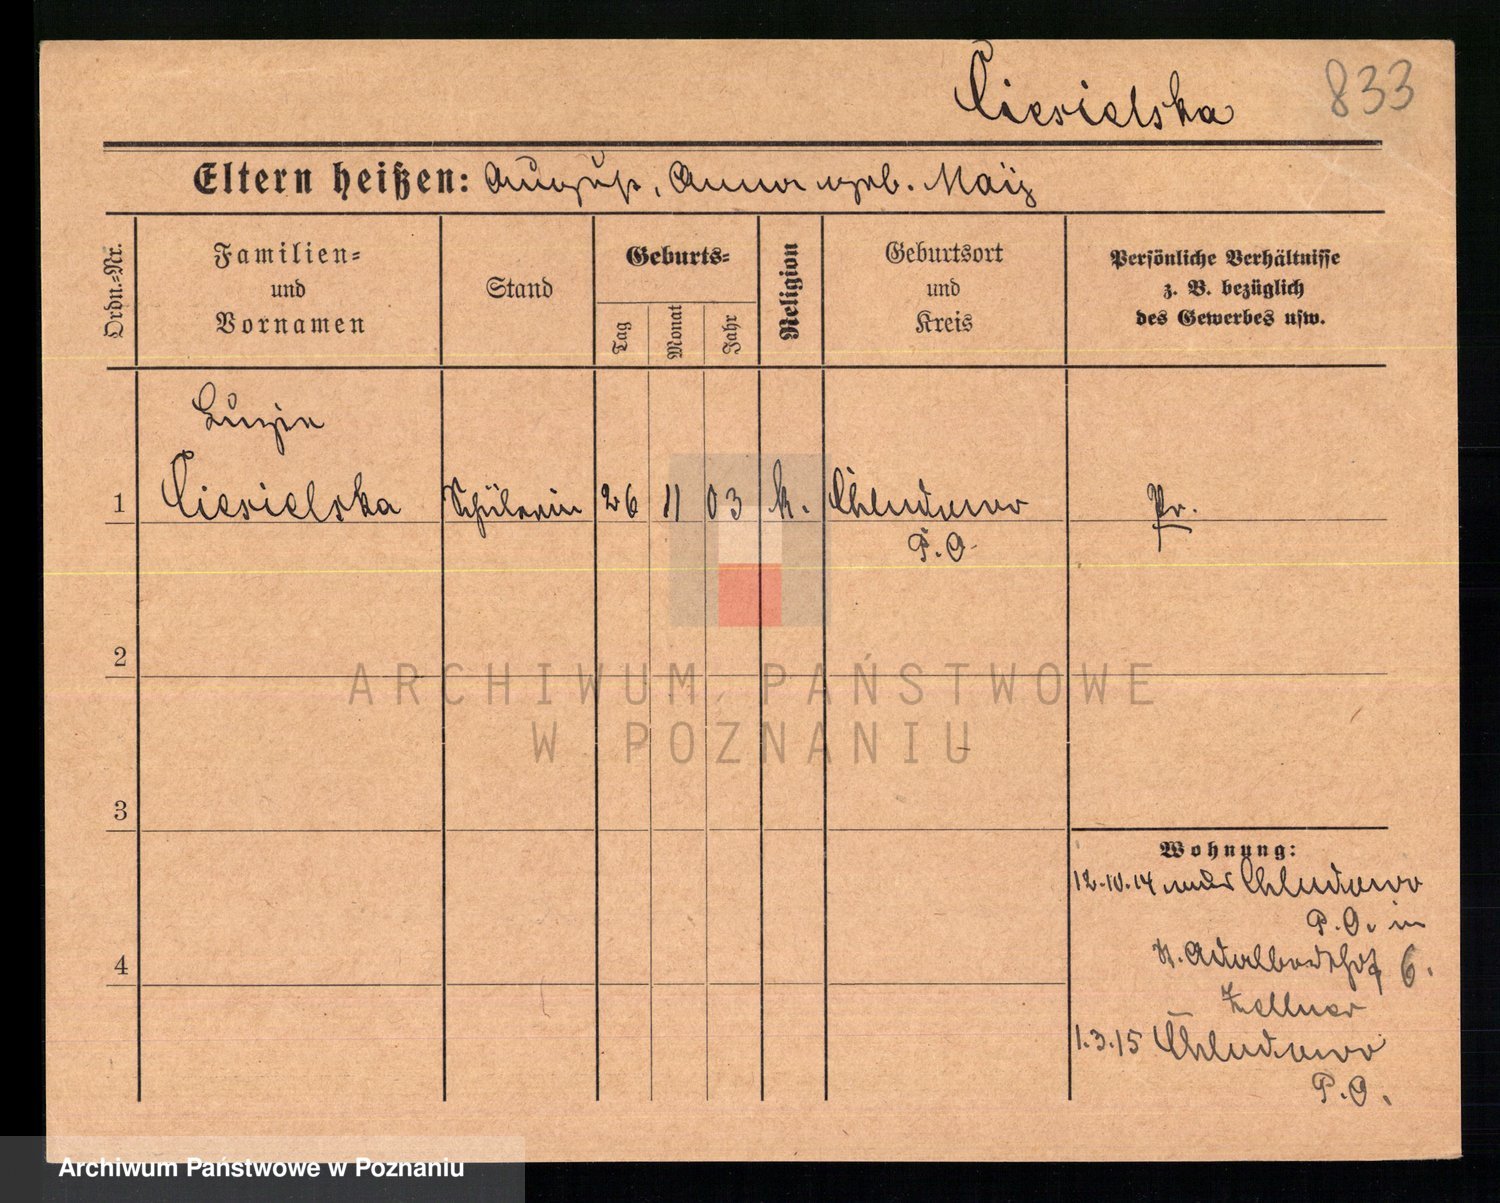 Ciesielska 833
Eltern heißen: August, Anna geb. Maiz
Ordn.-Nr.
Familien-
und
Vornamen
Stand
Geburts-
Tag
Monat
Jahr
Religion
Geburtsort
und
Kreis
Persönliche Verhältnisse
z. B. bezüglich
des Gewerbes usw.
Luzie
1 Ciesielska Schülerin 26 11 03 k. Chludowo Pr.
P. O.
2
ARCHIWUM PAŃSTWOWE
W POZNANIU
3
Wohnung:
12.10.14 Chludowo
P. O. in
St. Adalbertshof 6.
4
Zellner
1.3.15 Chludowo
P. O.
Archiwum Państwowe w Poznaniu